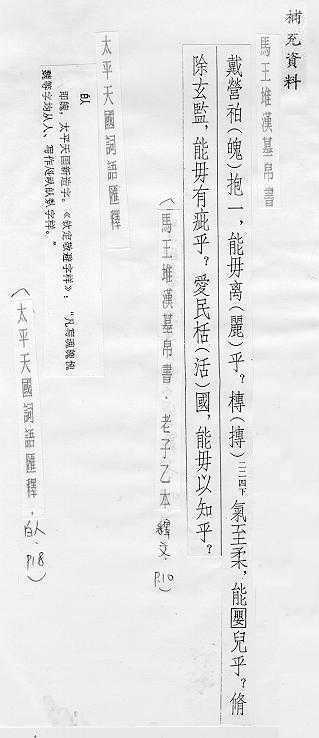 補充資料
馬王堆漢墓帛書
戴營袙(魄)抱一,能毋离(麗)乎?槫(摶)二二四下氣至柔,能嬰兒乎?脩
除玄監,能毋有疵乎?愛民栝(活)國,能毋以知乎?
(馬王堆漢墓帛書.老子乙本 釋文.P.10)
太平天國詞語匯釋
即魄,太平天国新造字。《钦定敬避字样》:“凡尊魂魄
等字均从人,写作字样。”
(太平天國詞語匯釋,白人.P.18)